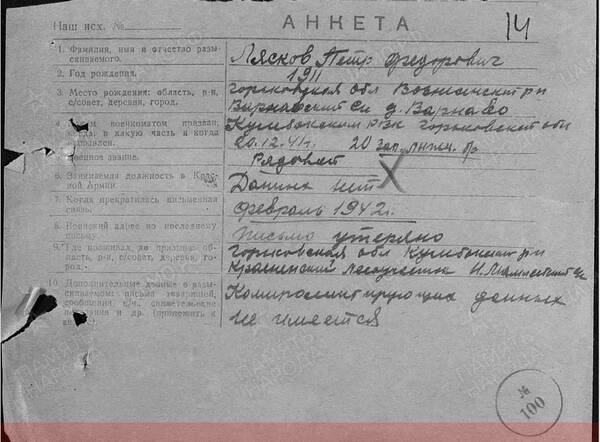 Наш исх. №
АНКЕТА
14
1. Фамилия, имя и отчество разыскиваемого.
Лясков Петр Федорович
2. Год рождения.
1911
3. Место рождения: область, р-н, с/совет, деревня, город.
Горьковская обл Вознесенский р-н
Варнавский с/с д. Варнаво
4. военкоматом призван, когда, в какую часть и когда направлен.
Кулебакским РВК Горьковской обл
20.12.41г. 20 зап. бр
5. Военное звание.
Рядовой
6. Занимаемая должность в Красной Армии.
Данных нет
7. Когда прекратилась письменная связь.
февраль 1942г.
8. Воинский адрес по последнему письму.
письмо утеряно
9. Где проживал до призыва: область, р-н, с/совет, деревня, город.
Горьковская обл Кулебакский р-н
10. Дополнительные данные о разыскиваемом: письма товарищей, сообщения в/ч. свидетельские показания и др. (приложить к анкете)
Компрометирующих данных
не имеется
№
100
ПАМЯТЬ
НАРОДА